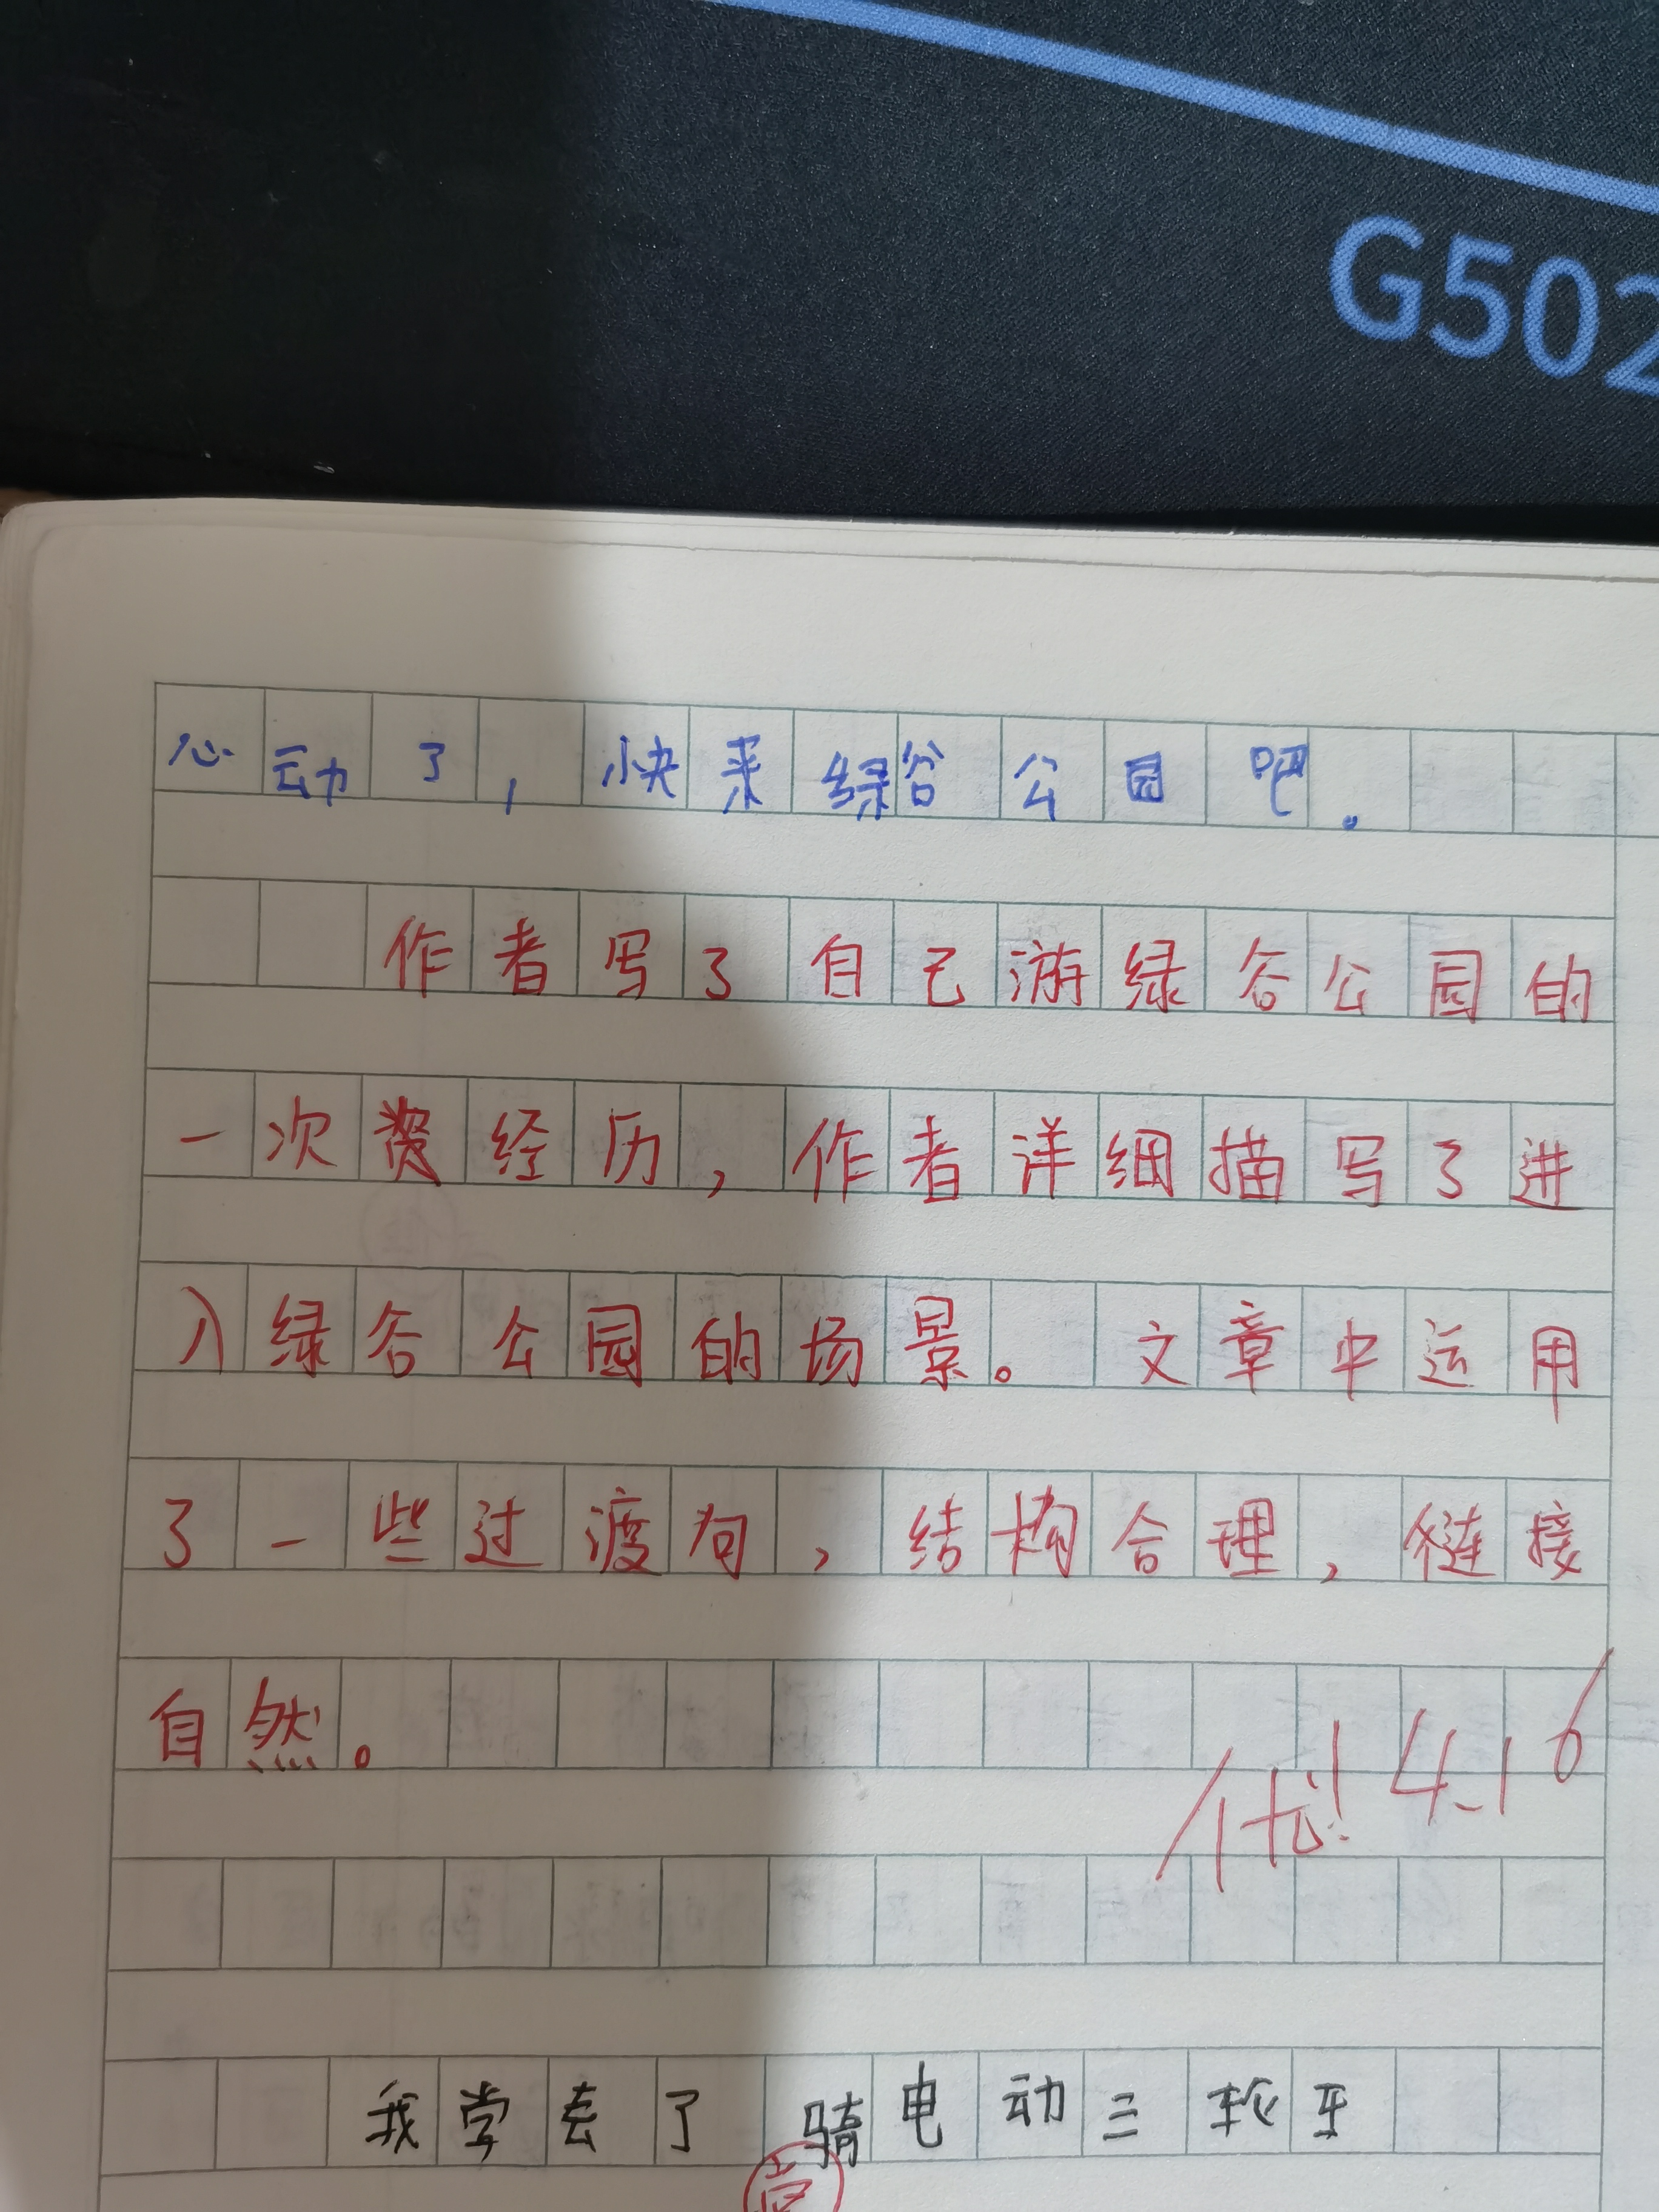 G502
心动了,快来绿谷公园吧。
作者写了自己游绿谷公园的
一次经历,作者详细描写了进
入绿谷公园的场景。文章中运用
了一些过渡句,结构合理,链接
自然。
优!4.16
我学去了骑电动三轮车